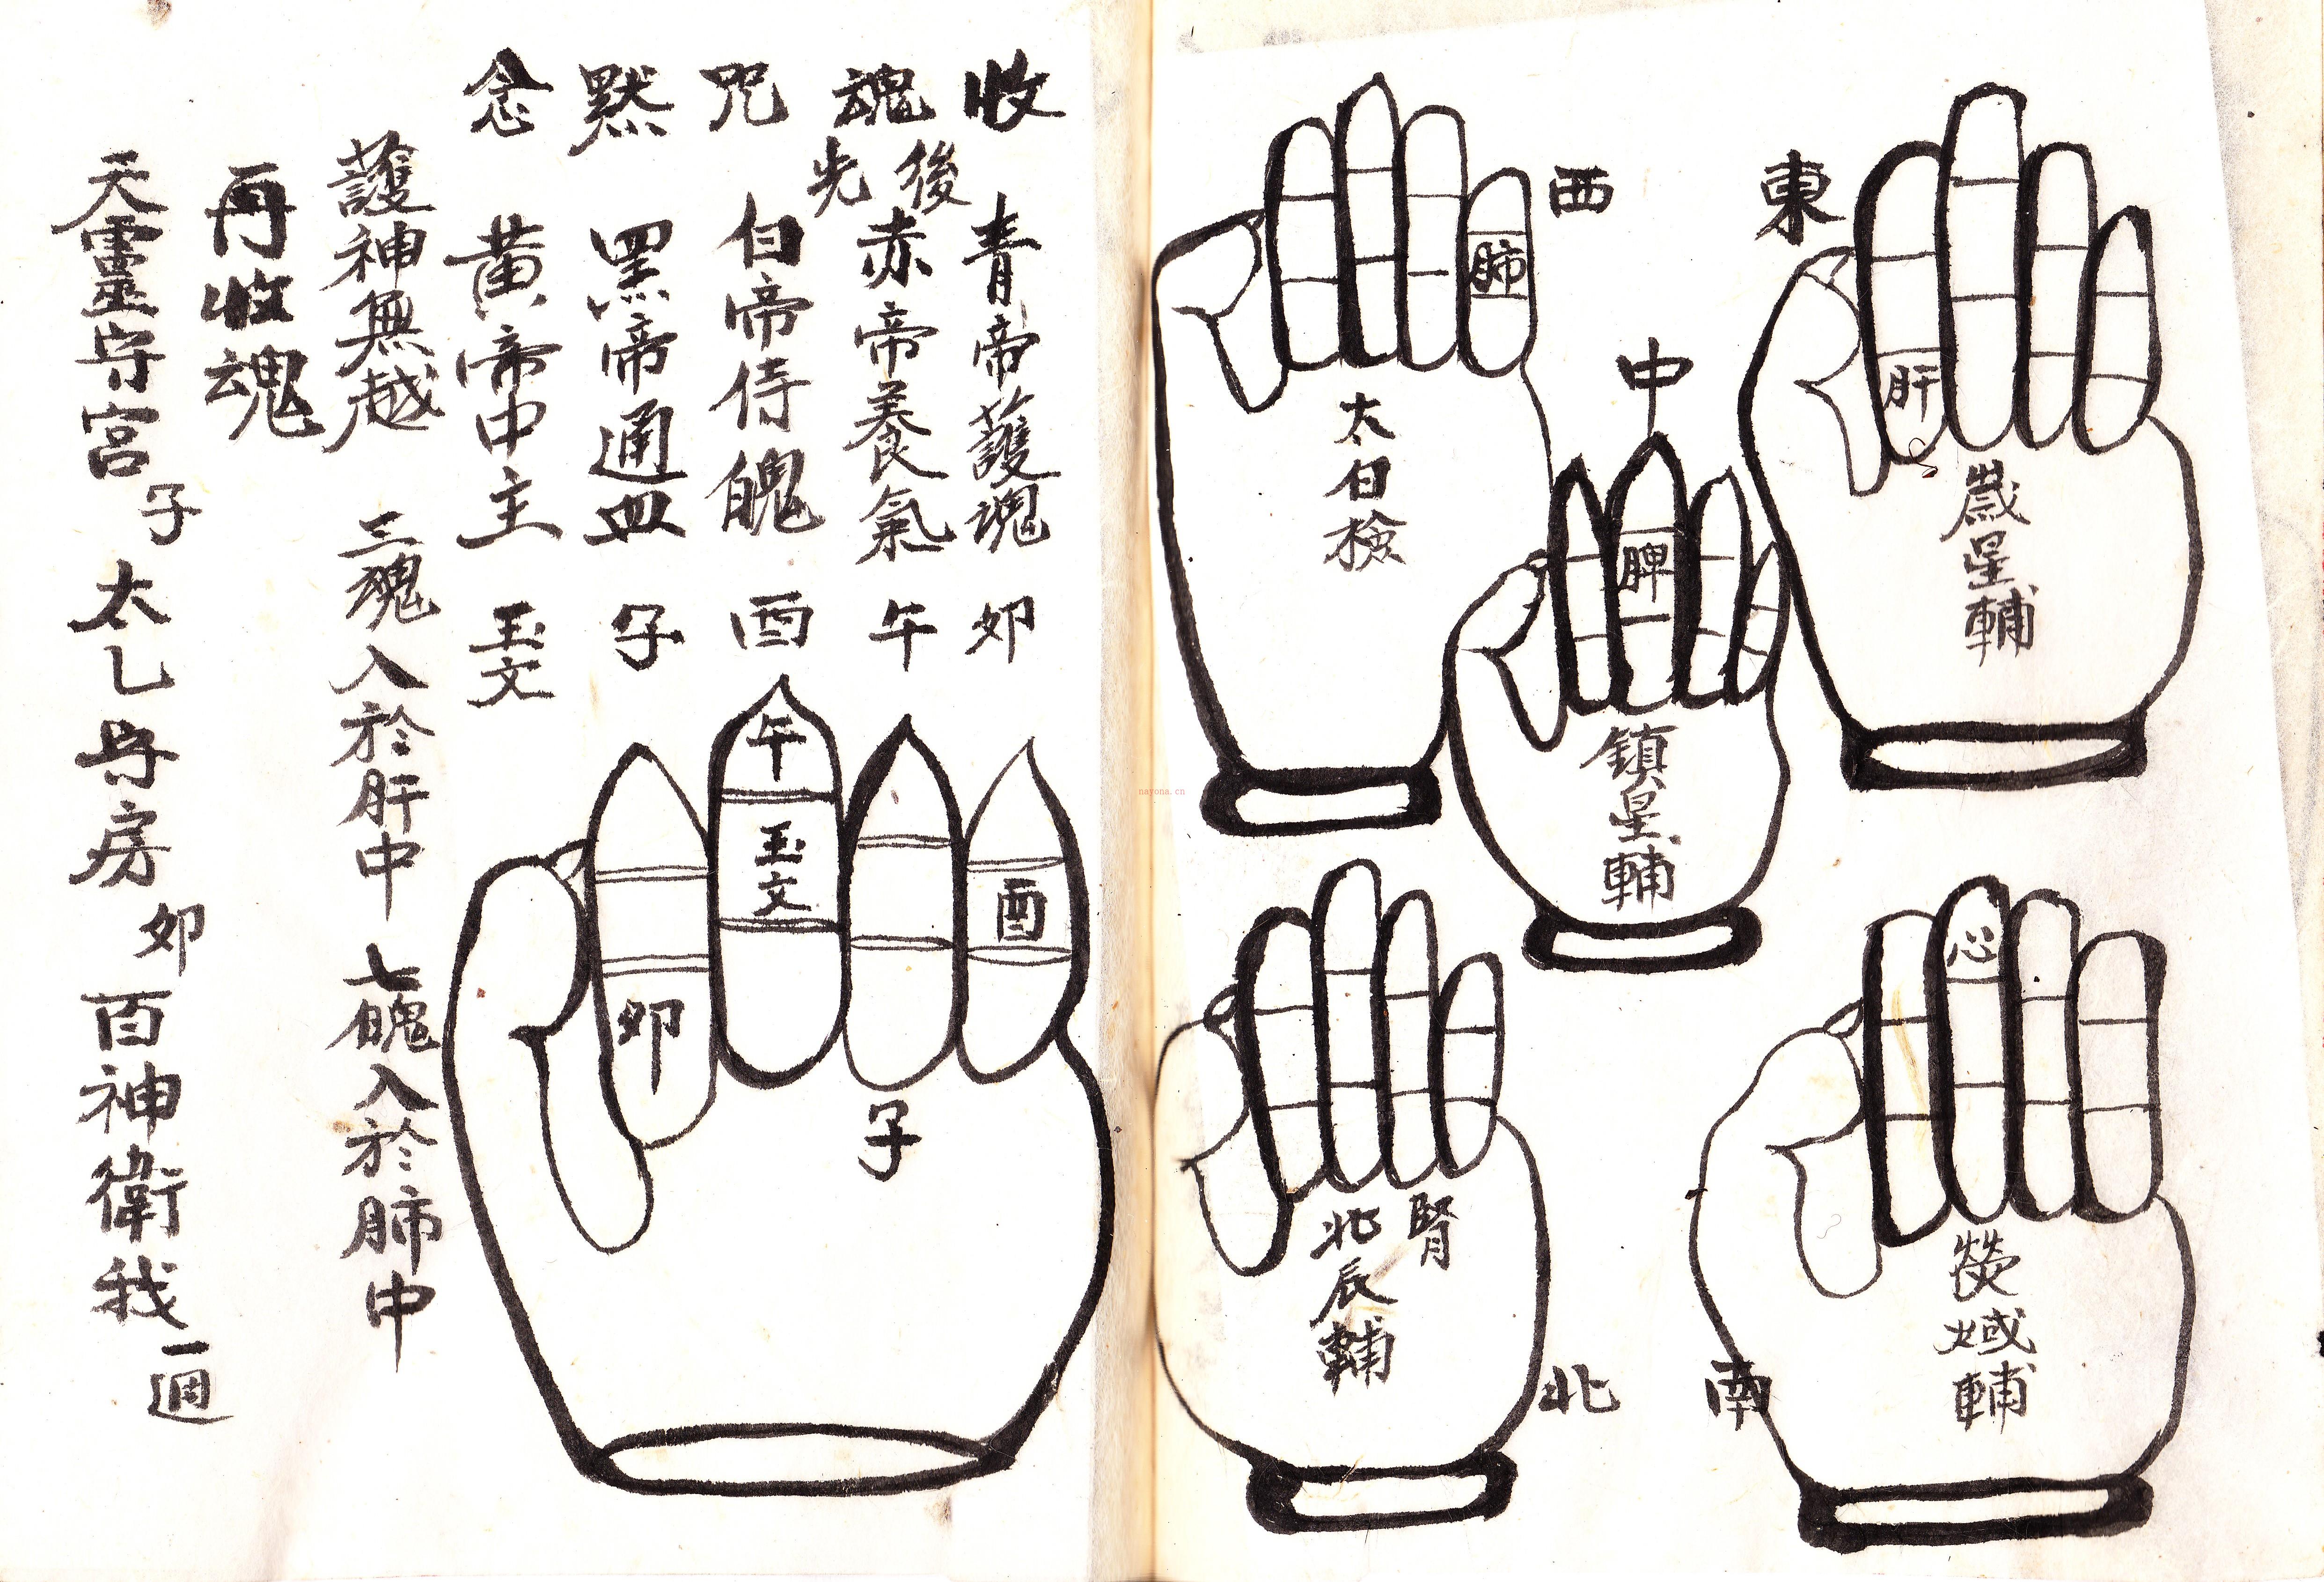 東
肝
歲星輔
西
肺
太白檢
中
脾
鎮星輔
南
心
熒惑輔
北
腎
北辰輔
收魂咒默念
後
先
青帝護魂 卯
赤帝養氣 午
白帝侍魄 酉
黑帝通血 子
黃帝中主 玉文
護神無越 三魂入於肝中 七魄入於肺中
再收魂
天靈守宮 子 太乙守房 卯 百神衛我 一週
午
玉文
酉
卯
子
nayona.cn